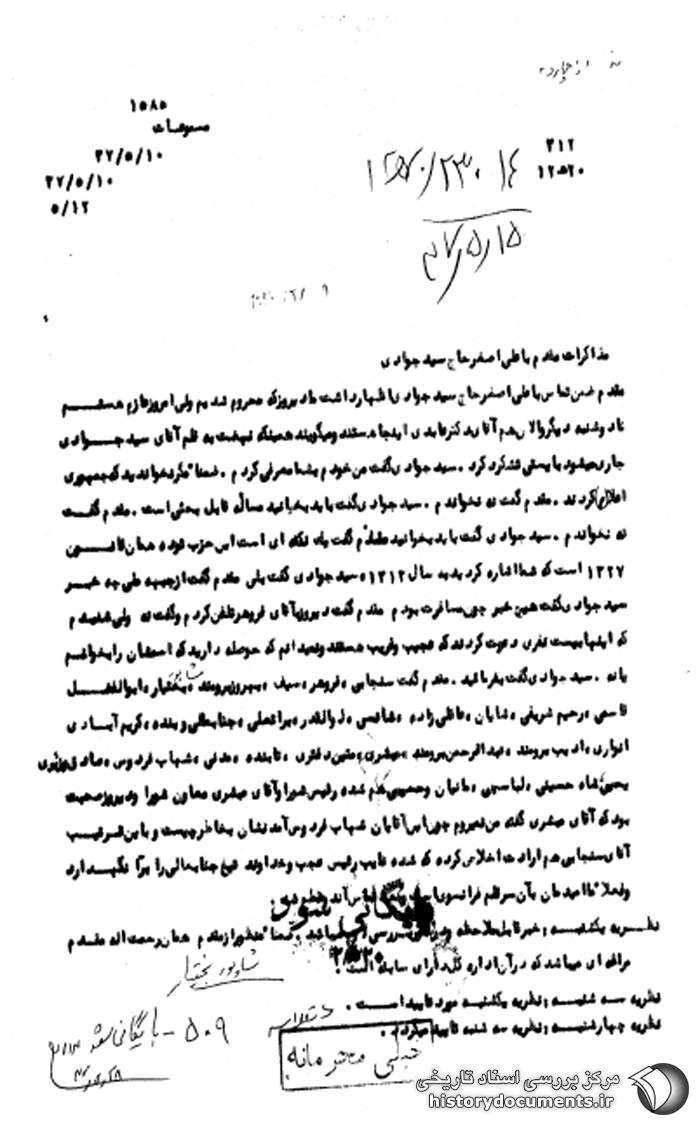 ۱۵۸۵
۳۱۲
۳۷/۵/۱۰
۱۲۵۲۰
۳۷/۵/۱۰
۵/۱۲
۱۵/۵/۳۷
مذاکرات مقدم با علی اصغر حاج سید جوادی
مقدم ضمن تماس با علی اصغر حاج سید جوادی اظهار داشت ما دیروز که محروم شدیم ولی امروز عازم هستم
تا دوشنبه دیگر والان هم آقای دکتر عابدی اینجا هستند و میگویند همینکه نهضت به قلم آقای سید جوادی
جاری میشود بایستی تشکر کرد . سید جوادی گفت من خودم بشما معرفی کردم . ضمنا" مگر نخواندید که جمهوری
اعلام کردند . مقدم گفت نه نخواندم . سید جوادی گفت باید بخوانید مسأله قابل بحثی است . مقدم گفت
نه نخواندم . سید جوادی گفت باید بخوانید مقدم گفت یک نکته ای است این حزب توده همان قانون
۱۳۲۷ است که شما اشاره کردید به سال ۱۳۱۲ ، سید جوادی گفت بلی مقدم گفت از جبهه ملی چه خبر
سید جوادی گفت هیچ خبر چون مسافرت بودم مقدم گفت دیروز آقای فروهر تلفن کردم و گفت نه ولی شنیدم
که اینها بیست نفری دعوت کردند که عجیب و غریب هستند و نمیدانم که حوصله دارید که اسمشان را بخوانم
یا نه . سید جوادی گفت بفرمائید . مقدم گفت سنجابی ، فروهر ، سیف ، بهروز برومند ، شاپور بختیار ، ابوالفضل
قاسمی ، رحیم شریفی ، شایان ، عاقلی زاده ، شانسی ، ذوالقدر ، براتعلی ، جنابعالی و بنده ، کریم آبادی
انواری ، ادیب برومند ، عبدالرحمن برومند ، مبشری ، متین دفتری ، تابنده ، مدنی ، شهاب فردوس ، صادق وزیری
یحیی شاه حسینی ، لباسچی ، مانیان و حسیبی هم شده رئیس شورا و آقای مبشری معاون شورا و دیروز صحبت
بود که آقای مبشری گفته من نمیروم چون اس آقایان شهاب فردوس آمدنشان بخاطر چیست و با این ترتیب
آقای سنجابی هم ارادت اخلاص کرده که شده نایب رئیس عجب و خداوند شیخ جنابعالی را برا نگهدارد
و فعلا" ما امیدمان بآن سر قلم فرانسوی
بایگانی شود
نظریه یکشنبه : خبر قابل ملاحظه و بررسی میباشد . ضمنا" منظور از مقدم همان رحمت اله مقدم
مراغه ای میباشد که در آن اداره کل دارای سابقه است .
شاپور بختیار
نظریه سه شنبه : نظریه یکشنبه مورد تایید است .
نظریه چهارشنبه : نظریه سه شنبه تایید میگردد .
۵۰۹ - بایگانی شود
خیلی محرمانه
مرکز بررسی اسناد تاریخی
historydocuments.ir